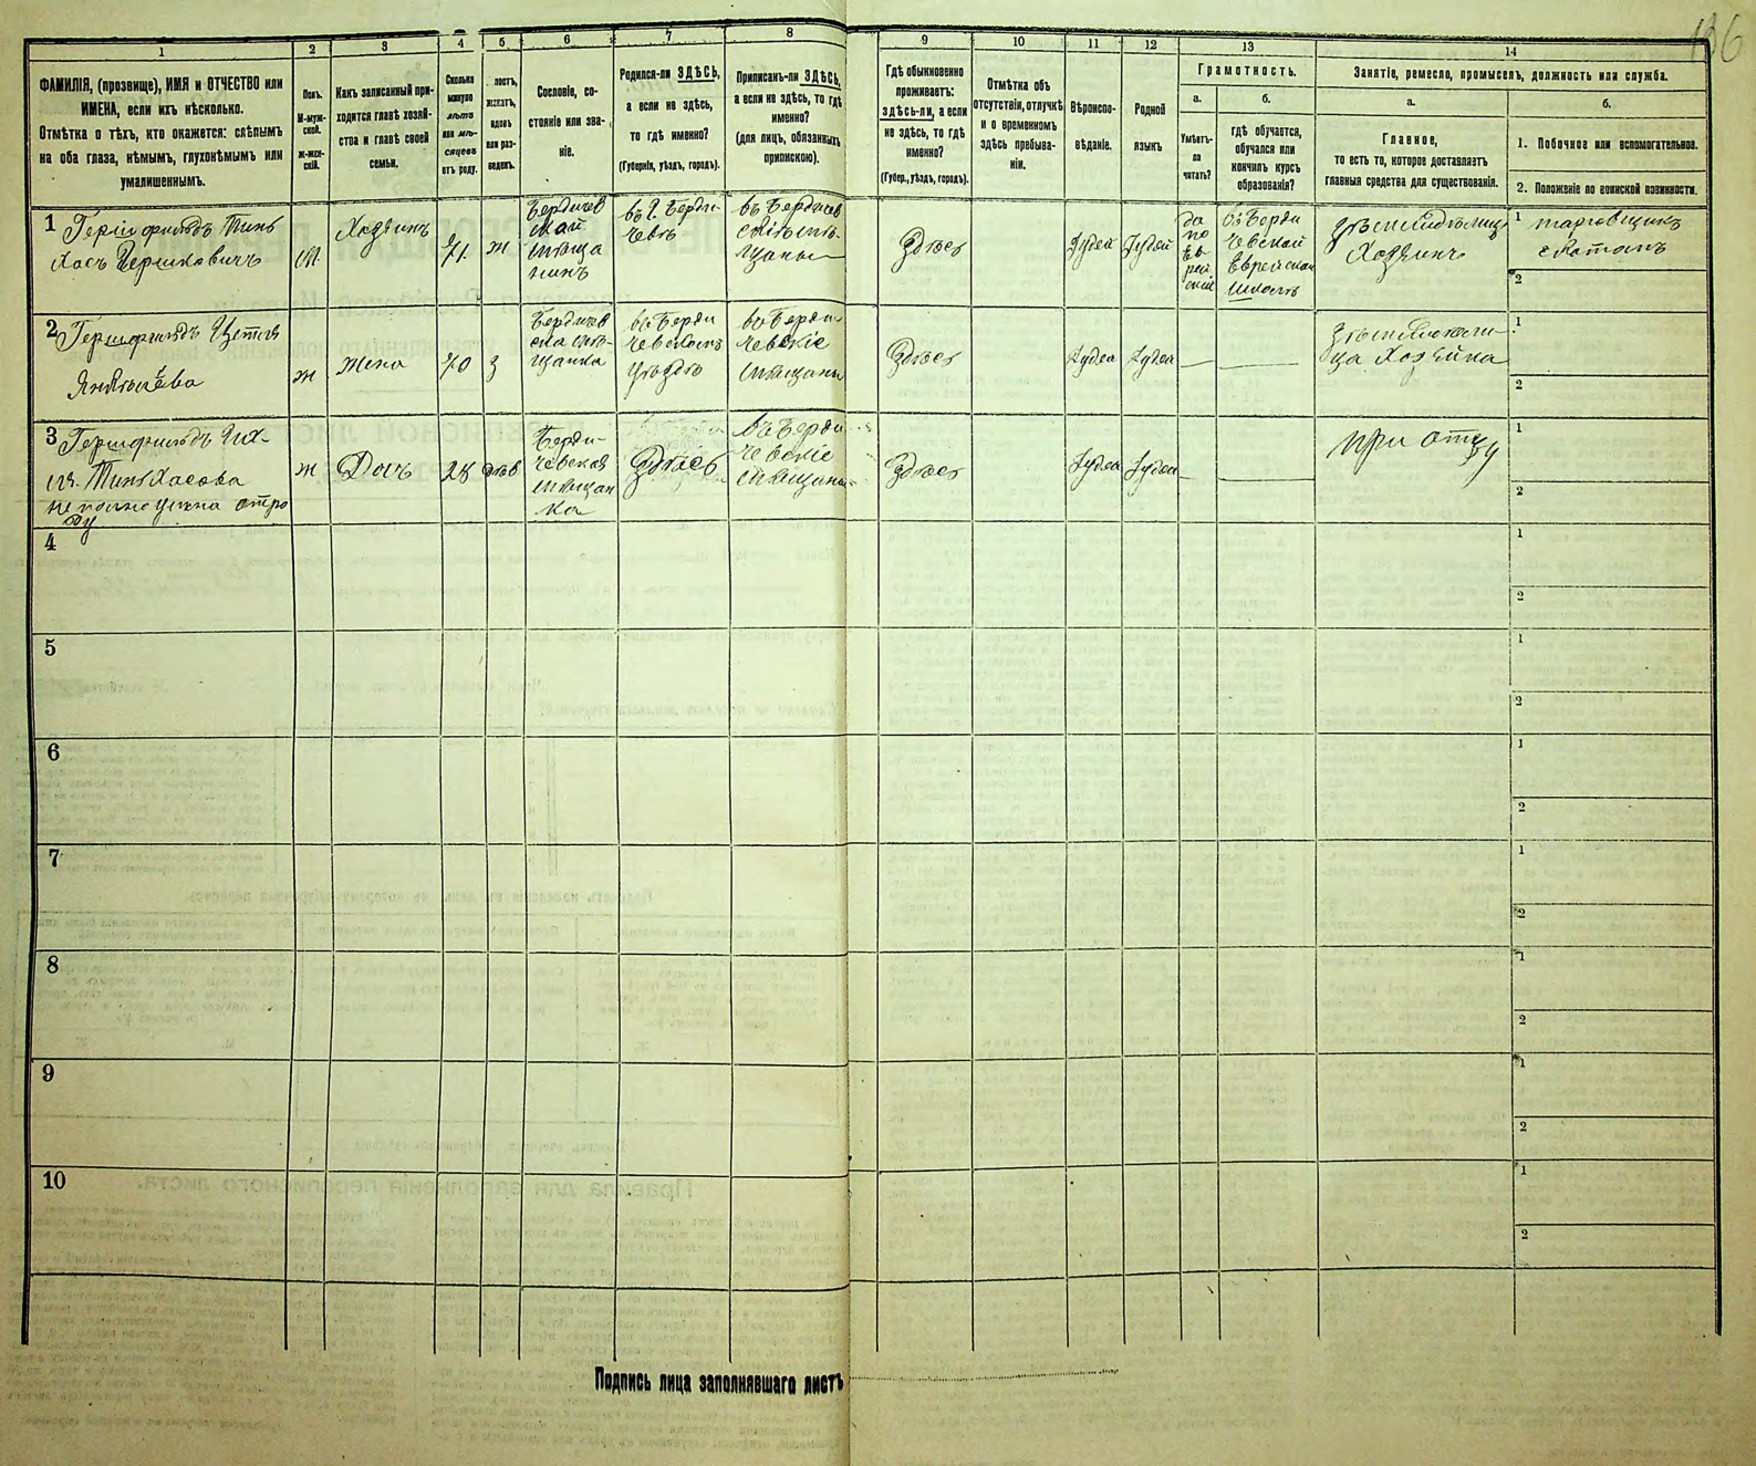 136
1
2
3
4
5
6
7
8
9
10
11
12
13
14
ФАМИЛІЯ, (прозвище), ИМЯ и ОТЧЕСТВО или
ИМЕНА, если ихъ нѣсколько.
Отмѣтка о тѣхъ, кто окажется: слѣпымъ
на оба глаза, нѣмымъ, глухонѣмымъ или
умалишеннымъ.
Полъ.
М-муж-
ской.
ж-жен-
скій.
Какъ записанный при-
ходится главѣ хозяй-
ства и главѣ своей
семьи.
Сколько
минуло
лѣтъ
или мѣ-
сяцевъ
отъ роду.
лостъ,
женатъ,
вдовъ
или раз-
веденъ.
Сословіе, со-
стояніе или зва-
ніе.
Родился-ли ЗДѢСЬ,
а если не здѣсь,
то гдѣ именно?
(Губернія, уѣздъ, городъ).
Приписанъ-ли ЗДѢСЬ,
а если не здѣсь, то гдѣ
именно?
(для лицъ, обязанныхъ
припискою).
Гдѣ обыкновенно
проживаетъ:
здѣсь-ли, а если
не здѣсь, то гдѣ
именно?
(Губер., уѣздъ, городъ).
Отмѣтка объ
отсутствіи, отлучкѣ
и о временномъ
здѣсь пребыва-
ніи.
Вѣроиспо-
вѣданіе.
Родной
языкъ
Грамотность.
а.
Умѣетъ-
ли
читать?
б.
гдѣ обучается,
обучался или
кончилъ курсъ
образованія?
Занятіе, ремесло, промыселъ, должность или служба.
а.
Главное,
то есть то, которое доставляетъ
главныя средства для существованія.
б.
1. Побочное или вспомогательное.
2. Положеніе по воинской повинности.
1 Гершфильдъ Пинь
хасъ Бершковичъ
М.
Хозяинъ
71.
ж
Бердичев
скай
мѣща
нинъ
въ г. Берди-
чевѣ
въ Бердичев
скіе мѣ-
щаны
Здѣсь
Іудей
Іудей
да
по
Ев-
рей
скіи
въ Берди
чевской
Еврейской
школѣ
Хозяинъ
1 торговщикъ
скотомъ
2
2 Гершфильдъ Цетля
ж
Жена
70
з
Бердичев
ска мѣ-
щанка
въ Берди
чевскомъ
уѣздѣ
въ Берди-
чевскіе
мѣщаны
Здѣсь
Іудеа
Іудеа
—
—
ца Хозяйка
1
2
3 Гершфильдъ
Пинхасова
ж
Дочь
28
дѣв
Берди-
чевская
мѣщан
ка
Здѣсь
въ Берди
чевскіе
мѣщаны
Здѣсь
Іудеа
Іудеа
—
—
при отцу
1
2
4
1
2
5
1
2
6
1
2
7
1
2
8
1
2
9
1
2
10
1
2
Подпись лица заполнявшаго листъ